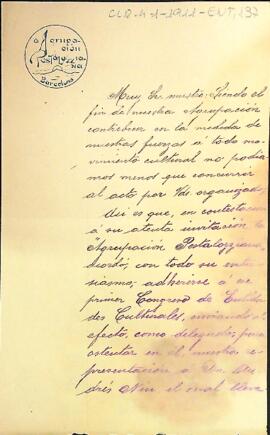 CUL-4-1-1911-ENT, 132
Agrupación Pestalozziana
Barcelona
Muy Sr. nuestro: Siendo el
fin de nuestra Agrupación
contribuir en la medida de
nuestras fuerzas a todo mo-
vimiento cultural no podía-
mos menos que concurrir
al acto por Vds. organizado.
Asi es que, en contestación
á su atenta invitación la
"Agrupación Pestalozziana
acordó, con todo su entu-
siasmo, adherirse á ese
primer Congreso de Entida-
des Culturales, enviando al
efecto, como delegado, para
ostentar en él nuestra re-
presentación a Dn. An-
drés Nin el cual lleva